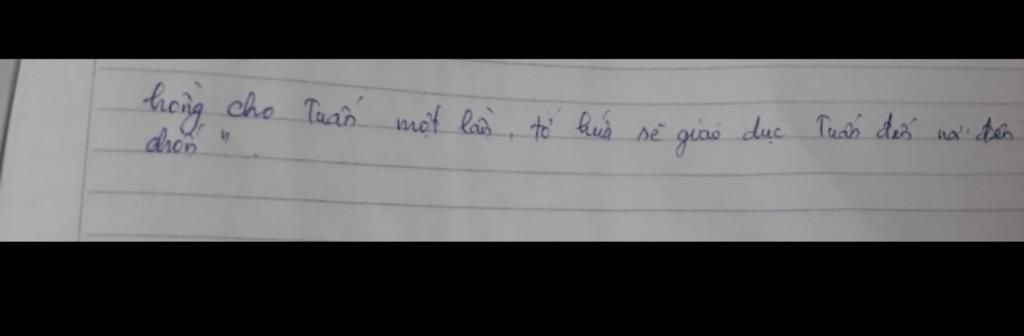 hồng cho Tuấn một lần, tớ hứa sẽ giáo dục Tuấn đến nơi đến
chốn".